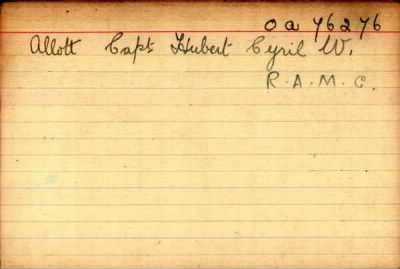 oa 76276
Allott Capt Hubert Cyril W.
R.A.M.C.